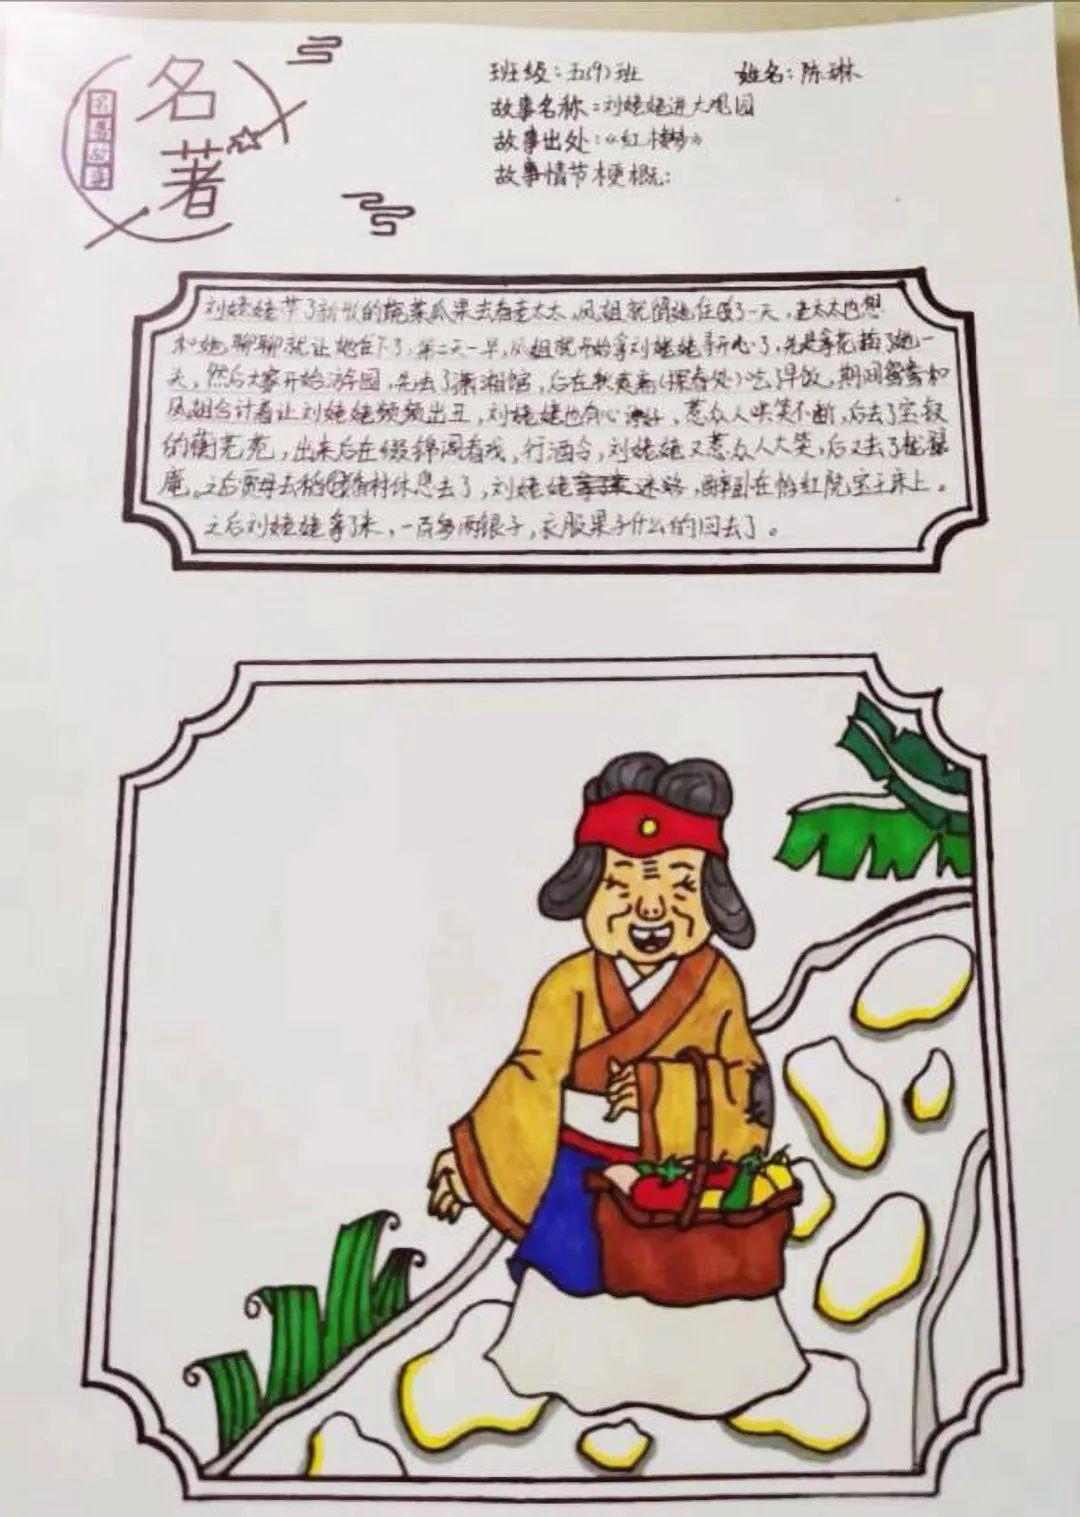 名著
名著故事
班级：五(9)班 姓名：陈琳
故事名称：刘姥姥进大观园
故事出处：《红楼梦》
故事情节梗概：
刘姥姥带了新收的蔬菜瓜果去看老太太，凤姐就留她住了一天，老太太也想
和她聊聊就让她住下了，第二天一早，凤姐就开始拿刘姥姥寻开心了，先是拿花插了她一
头，然后大家开始游园，先去了潇湘馆，后在秋爽斋(探春处)吃了早饭，期间鸳鸯和
凤姐合计着让刘姥姥频频出丑，刘姥姥也有心，惹众人哄笑不断，后去了宝钗
的蘅芜苑，出来后在缀锦阁看戏，行酒令，刘姥姥又惹众人大笑，后又去了栊翠
庵。之后贾母去稻香村休息去了，刘姥姥迷路，醉卧在怡红院宝玉床上。
之后刘姥姥拿了米，一百多两银子，衣服果子什么的回去了。